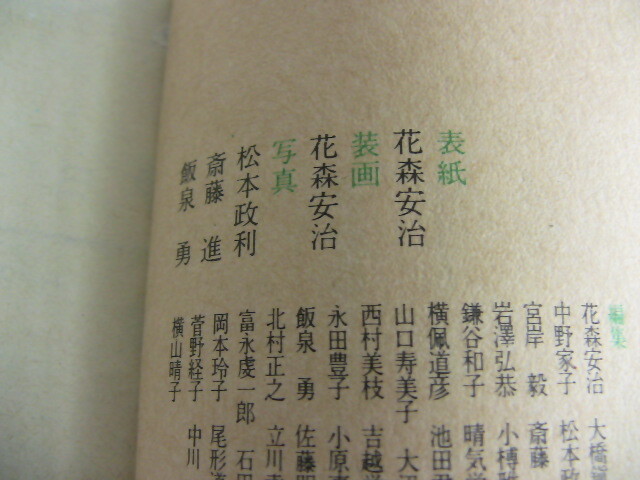 表紙
花森安治
装画
花森安治
写真
松本政利
斎藤 進
飯泉 勇
編集
花森安治 大橋
中野家子 松本
宮岸 毅 斎藤
岩澤弘恭 小榑
鎌谷和子 晴気
横佩道彦 池田
山口寿美子 大沼
西村美枝 吉越
永田豊子 小原
飯泉 勇 佐藤
北村正之 立川
富永虔一郎 石田
岡本玲子 尾形
菅野経子 中川
横山晴子